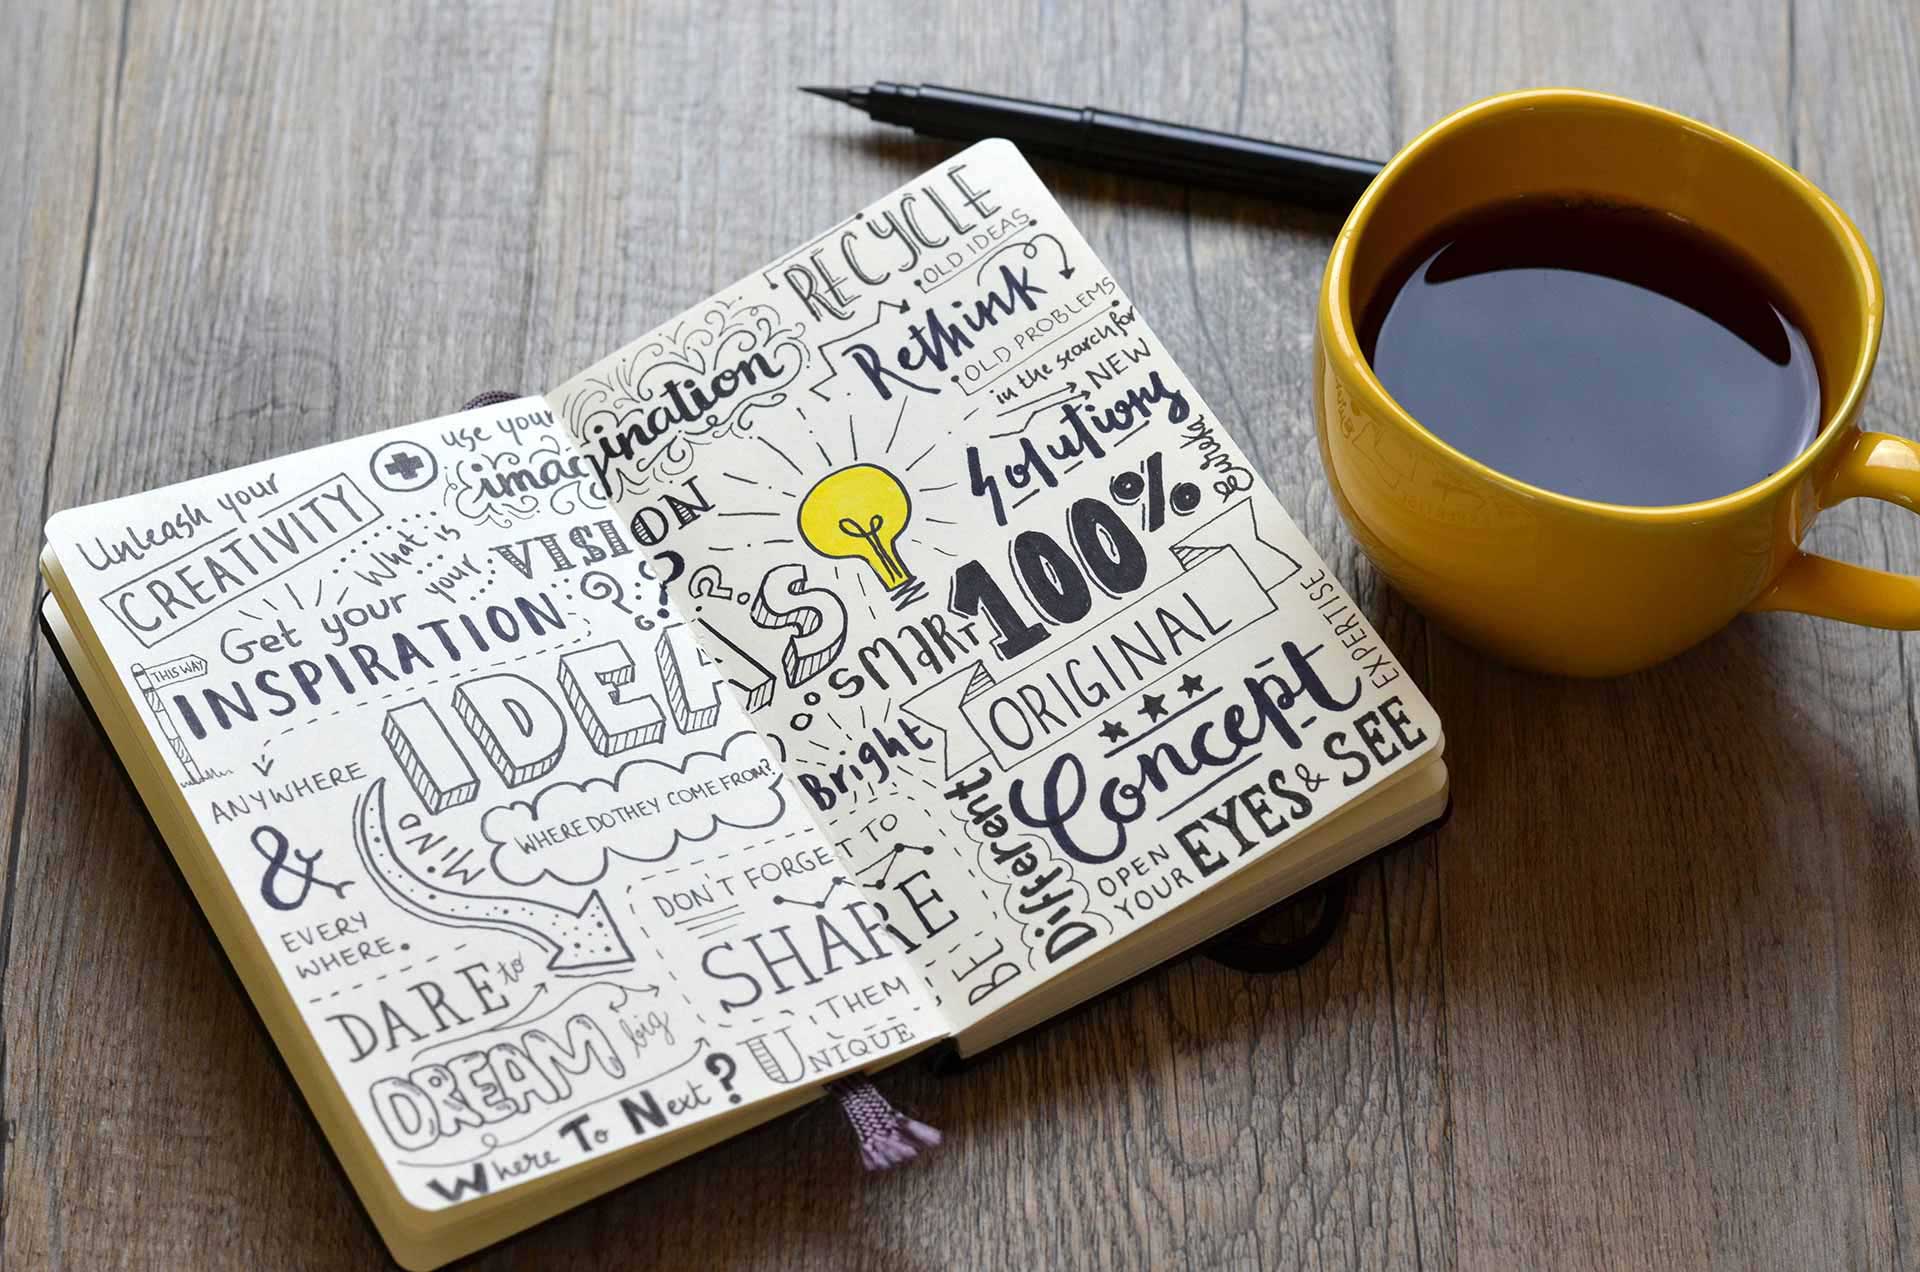 Unleash your
CREATIVITY
use your
imagination
What is
your
VISION
??
Get your
INSPIRATION
THIS WAY
ANYWHERE
&
EVERY
WHERE.
IDEAS
MIND
WHERE DO THEY COME FROM?
DON'T FORGET TO
SHARE
THEM
DARE to
DREAM big
Where To Next?
UNIQUE
RECYCLE
OLD IDEAS
Rethink
OLD PROBLEMS
in the search for
NEW
Solutions
Eureka
?
SMART
100%
ORIGINAL
Concept
EXPERTISE
Bright
BE
Different
OPEN
YOUR
EYES & SEE